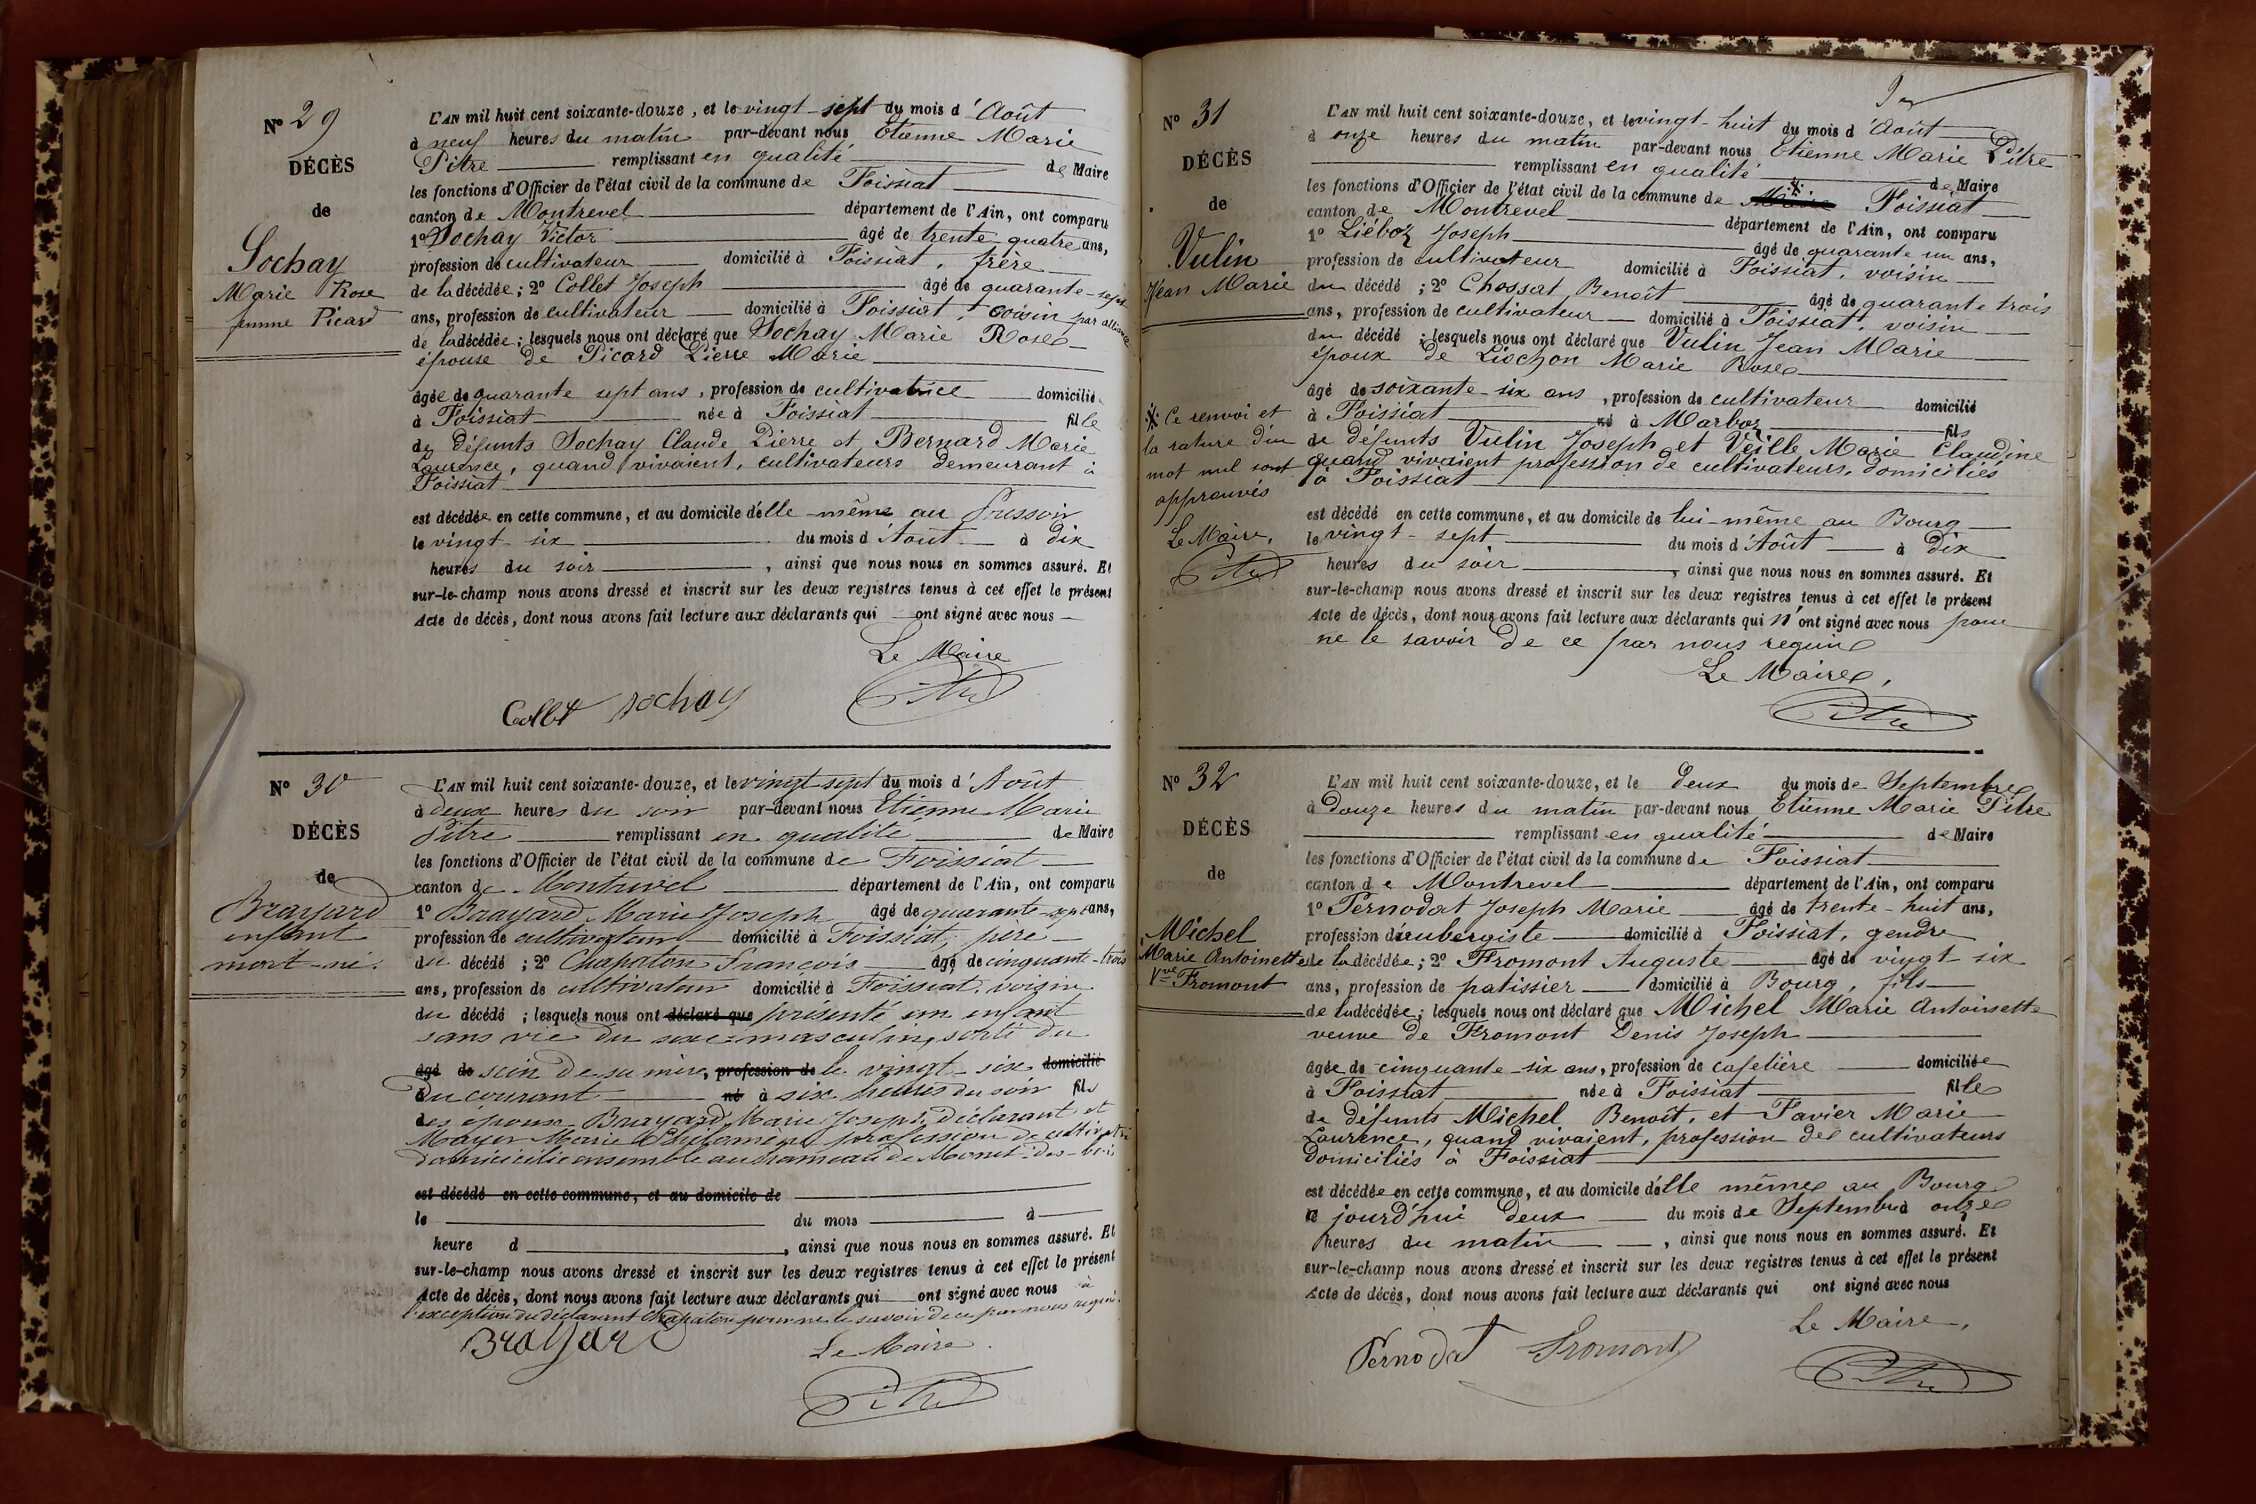 N° 29
DÉCÈS
de
Sochay
Marie Rose
femme Picard
L'AN mil huit cent soixante-douze, et le vingt-sept du mois d'Août
à neuf heures du matin par-devant nous Etienne Marie
Pitre remplissant en qualité de Maire
les fonctions d'Officier de l'état civil de la commune de Foissiat
canton de Montrevel département de l'Ain, ont comparu
1° Sochay Victor âgé de trente quatre ans,
profession de cultivateur domicilié à Foissiat, frère
de la décédée ; 2° Collet Joseph âgé de quarante-sept
ans, profession de cultivateur domicilié à Foissiat, cousin par alliance
de la décédée ; lesquels nous ont déclaré que Sochay Marie Rose
épouse de Picard Pierre Marie
âgée de quarante sept ans, profession de cultivatrice domicilié
à Foissiat née à Foissiat fille
de défunts Sochay Claude Pierre et Bernard Marie
Laurence, quand vivaient, cultivateurs demeurant à
Foissiat
est décédée en cette commune, et au domicile d'elle-même au Pressoir
le vingt-six du mois d'Août à dix
heures du soir, ainsi que nous nous en sommes assuré. Et
sur-le-champ nous avons dressé et inscrit sur les deux registres tenus à cet effet le présent
Acte de décès, dont nous avons fait lecture aux déclarants qui ont signé avec nous
Le Maire
Collet Sochay Pitre
N° 30
DÉCÈS
de
Brayard
enfant
mort-né.
L'AN mil huit cent soixante-douze, et le vingt-sept du mois d'Août
à deux heures du soir par-devant nous Etienne Marie
Pitre remplissant en qualité de Maire
les fonctions d'Officier de l'état civil de la commune de Foissiat
canton de Montrevel département de l'Ain, ont comparu
1° Brayard Marie Joseph âgé de quarante-sept ans,
profession de cultivateur domicilié à Foissiat, père
du décédé ; 2° Chapaton François âgé de cinquante-trois
ans, profession de cultivateur domicilié à Foissiat, voisin
du décédé ; lesquels nous ont déclaré que présenté un enfant
sans vie du sexe masculin, sorti du
âgé de sein de sa mère, profession de le vingt-six domicilié
du courant né à six heures du soir fils
des époux Brayard Marie Joseph, déclarant et
Mayer Marie Philomène profession de cultivatrice
domicilié ensemble au hameau de Mont-des-bois
est décédé en cette commune, et au domicile de
le du mois à
heure d , ainsi que nous nous en sommes assuré. Et
sur-le-champ nous avons dressé et inscrit sur les deux registres tenus à cet effet le présent
Acte de décès, dont nous avons fait lecture aux déclarants qui ont signé avec nous à
l'exception du déclarant Chapaton pour ne le savoir de ce par nous requis.
Brayard Le Maire
Pitre
N° 31
DÉCÈS
de
Vulin
Jean Marie
L'AN mil huit cent soixante-douze, et le vingt-huit du mois d'Août
à onze heures du matin par-devant nous Etienne Marie Pitre
remplissant en qualité de Maire
les fonctions d'Officier de l'état civil de la commune de Maire Foissiat
canton de Montrevel département de l'Ain, ont comparu
1° Liéboz Joseph âgé de quarante un ans,
profession de cultivateur domicilié à Foissiat, voisin
du décédé ; 2° Chossat Benoît âgé de quarante trois
ans, profession de cultivateur domicilié à Foissiat, voisin
du décédé ; lesquels nous ont déclaré que Vulin Jean Marie
époux de Lischon Marie Rose
âgé de soixante-six ans, profession de cultivateur domicilié
à Foissiat né à Marboz fils
de défunts Vulin Joseph et Veille Marie Claudine
quand vivaient profession de cultivateurs, domiciliés
à Foissiat
Ce renvoi et
la rature d'un
mot nul sont
approuvés
Le Maire,
Pitre
est décédé en cette commune, et au domicile de lui-même au Bourg
le vingt-sept du mois d'Août à dix
heures du soir, ainsi que nous nous en sommes assuré. Et
sur-le-champ nous avons dressé et inscrit sur les deux registres tenus à cet effet le présent
Acte de décès, dont nous avons fait lecture aux déclarants qui n'ont signé avec nous pour
ne le savoir de ce par nous requis
Le Maire,
Pitre
N° 32
DÉCÈS
de
Michel
Marie Antoinette
Vve Fromont
L'AN mil huit cent soixante-douze, et le deux du mois de Septembre
à douze heures du matin par-devant nous Etienne Marie Pitre
remplissant en qualité de Maire
les fonctions d'Officier de l'état civil de la commune de Foissiat
canton de Montrevel département de l'Ain, ont comparu
1° Pernodat Joseph Marie âgé de trente-huit ans,
profession d'aubergiste domicilié à Foissiat, gendre
de la décédée ; 2° Fromont Auguste âgé de vingt six
ans, profession de patissier domicilié à Bourg, fils
de la décédée ; lesquels nous ont déclaré que Michel Marie Antoinette
veuve de Fromont Denis Joseph
âgée de cinquante-six ans, profession de cafetière domiciliée
à Foissiat née à Foissiat fille
de défunts Michel Benoît, et Favier Marie
Laurence, quand vivaient, profession de cultivateurs
domiciliés à Foissiat
est décédée en cette commune, et au domicile d'elle même au Bourg
le jourd'hui deux du mois de Septembre à onze
heures du matin, ainsi que nous nous en sommes assuré. Et
sur-le-champ nous avons dressé et inscrit sur les deux registres tenus à cet effet le présent
Acte de décès, dont nous avons fait lecture aux déclarants qui ont signé avec nous
Le Maire,
Pernodat Fromont Pitre